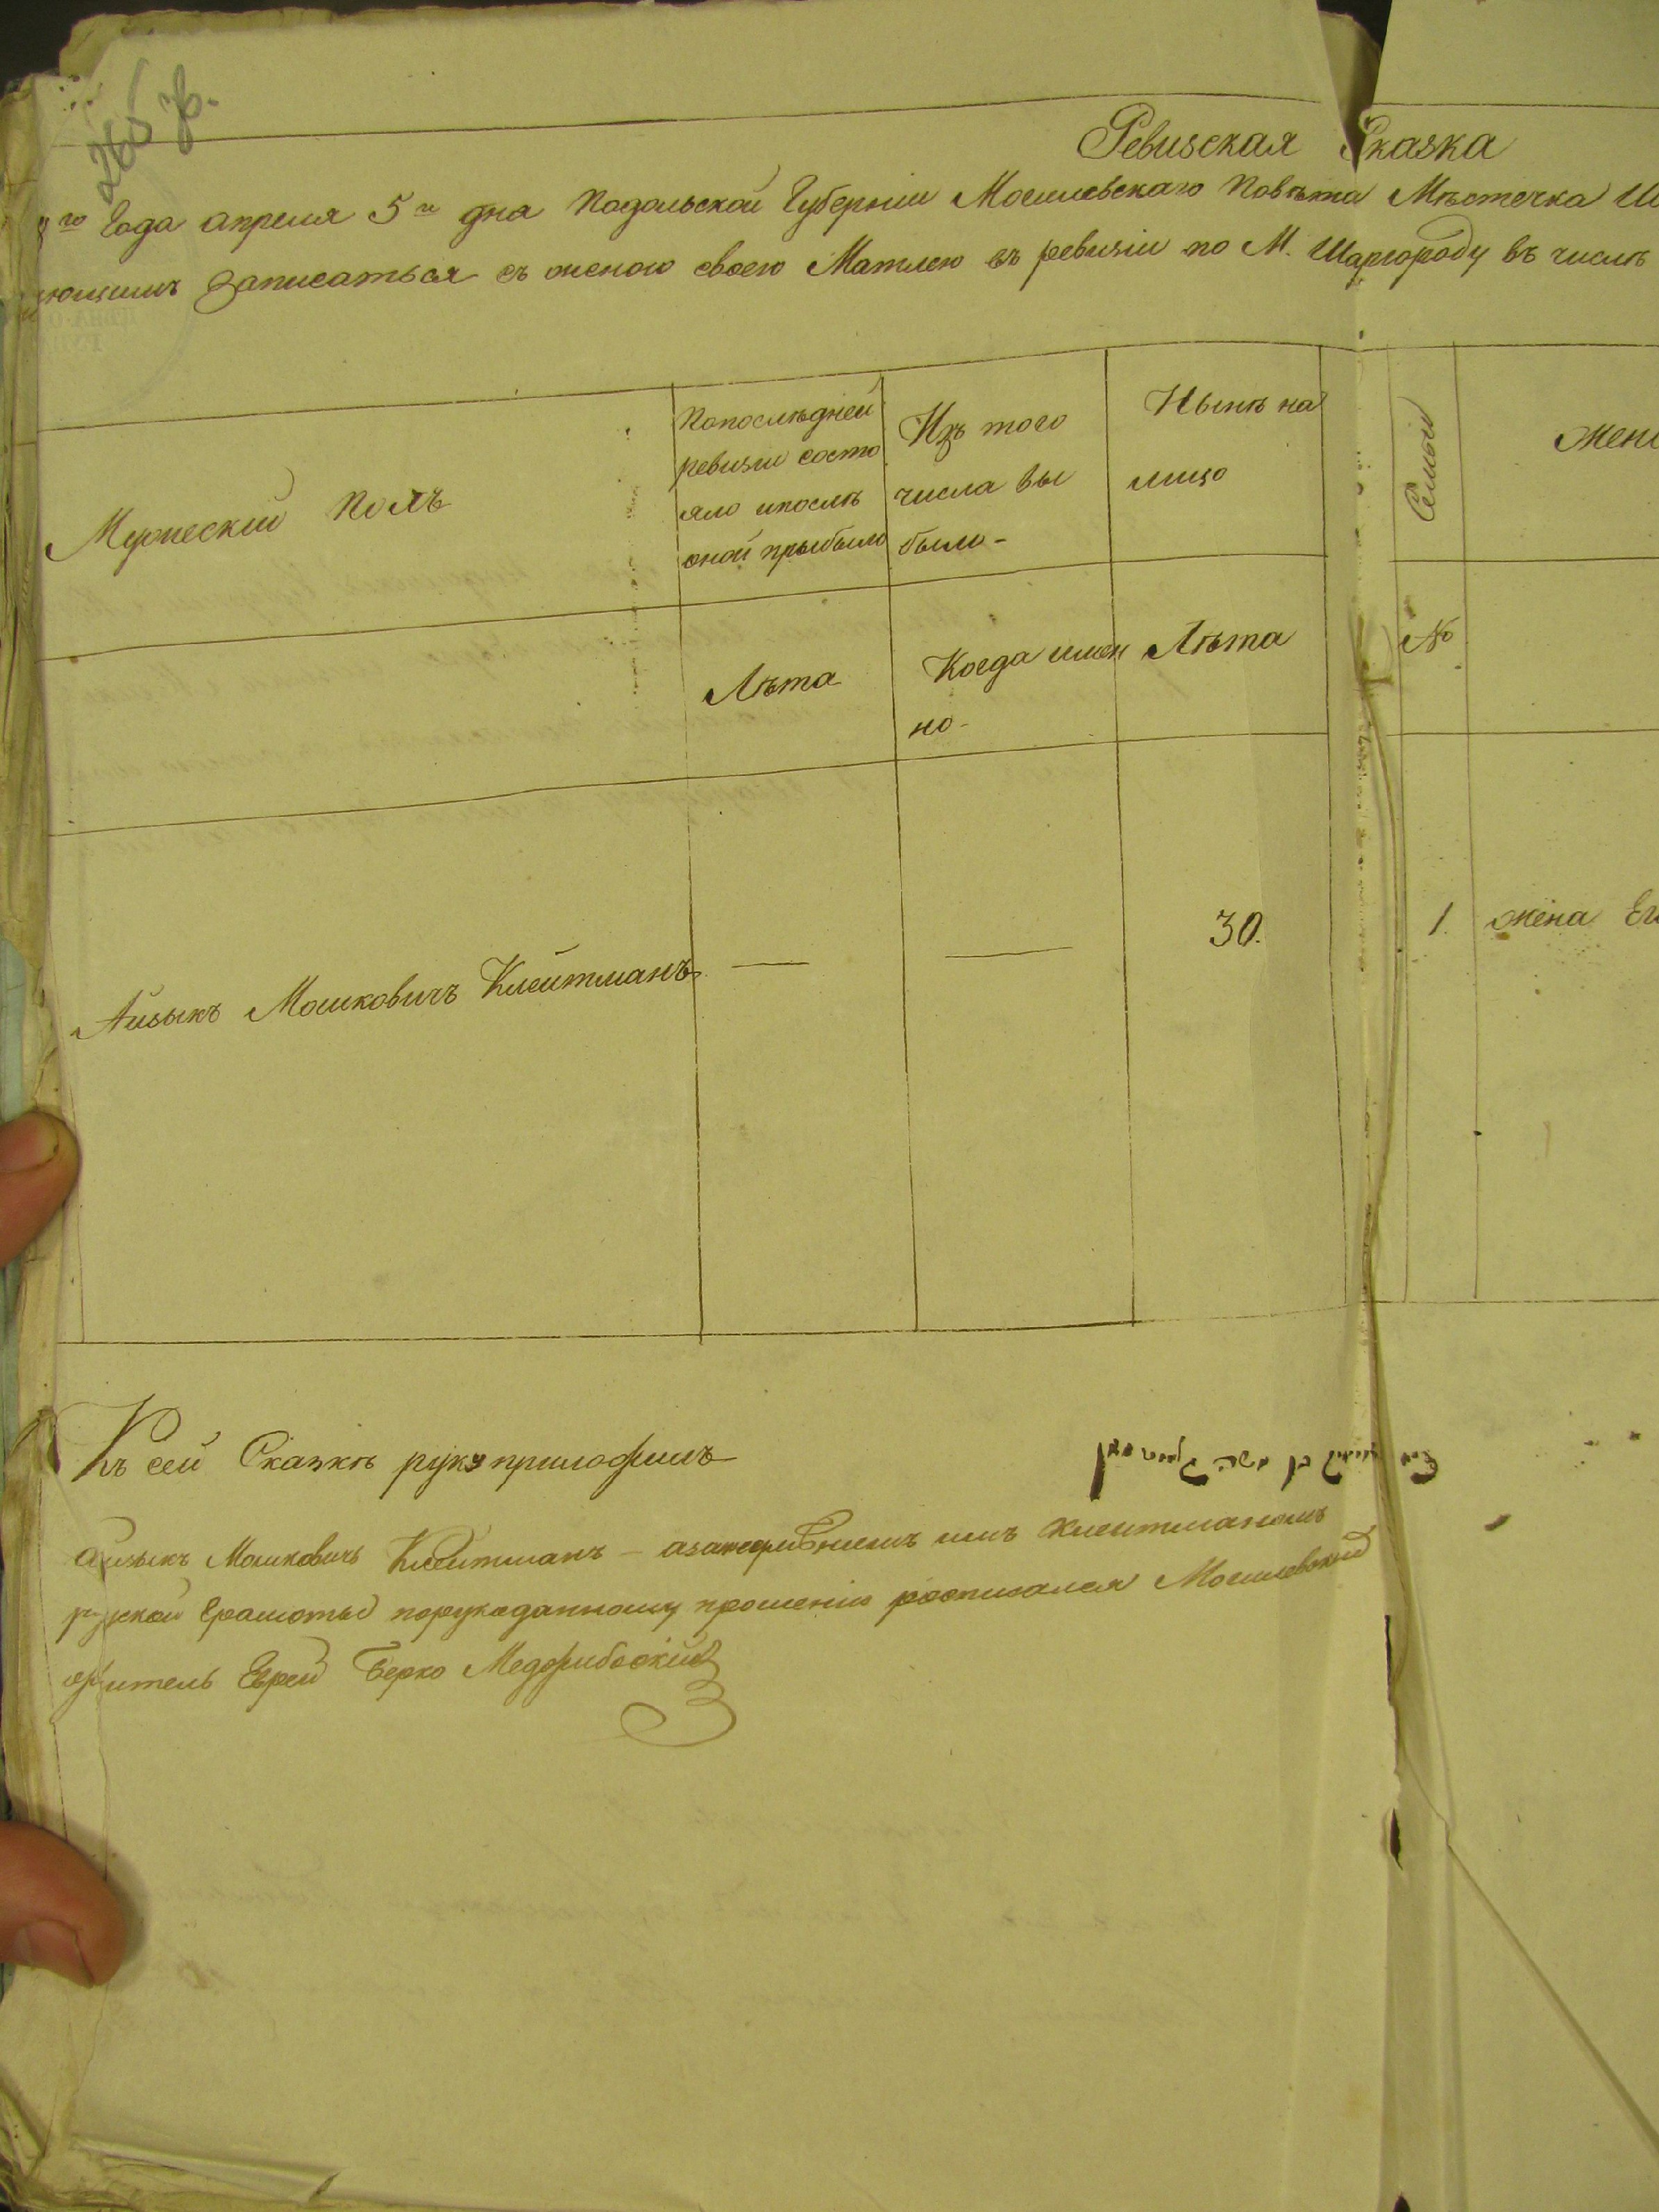 265 об.
Ревизская Сказка
8го Года апреля 5го дня Подольской Губернии Могилевскаго Повѣта Мѣстечка Ш
ющимъ записаться съ женою своею Матлею въ ревизіи по М. Шаргороду въ числѣ
Мужескій полъ
Попослѣдней
ревизіи состо
яло ипослѣ
оной прыбыло
Изъ того
числа вы
было-
Нынѣ на
лицо
Семьи
Жен
Лѣта
Когда имен
но-
Лѣта
№
Айзыкъ Мошковичъ Клейтманъ
30.
1.
жена Ег
Къ сей Сказкѣ руку приложилъ
Айзыкъ Мошковичь Клейтманъ - имъ Клейтманомъ
руской Грамоты порукоданному прошенію росписался Могилевский
житель Еврей Берко Меджибоский